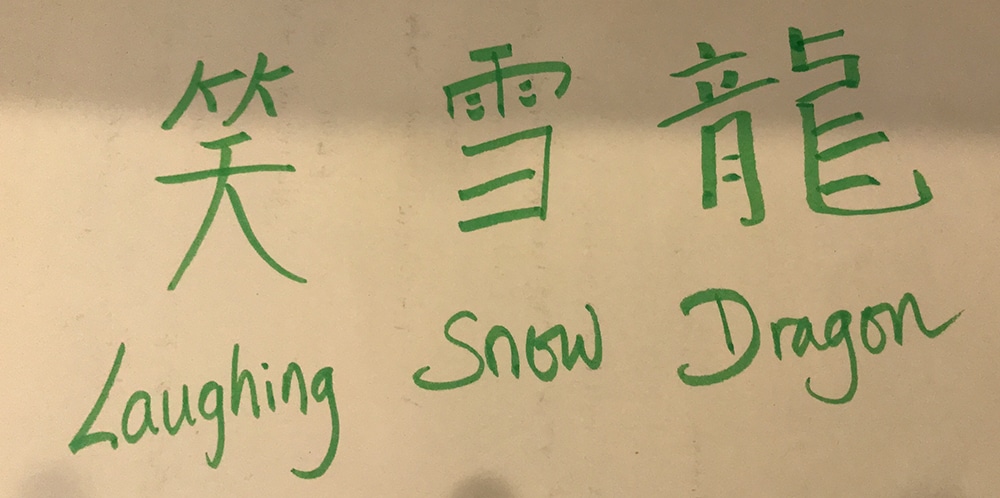 笑雪龍
Laughing Snow Dragon